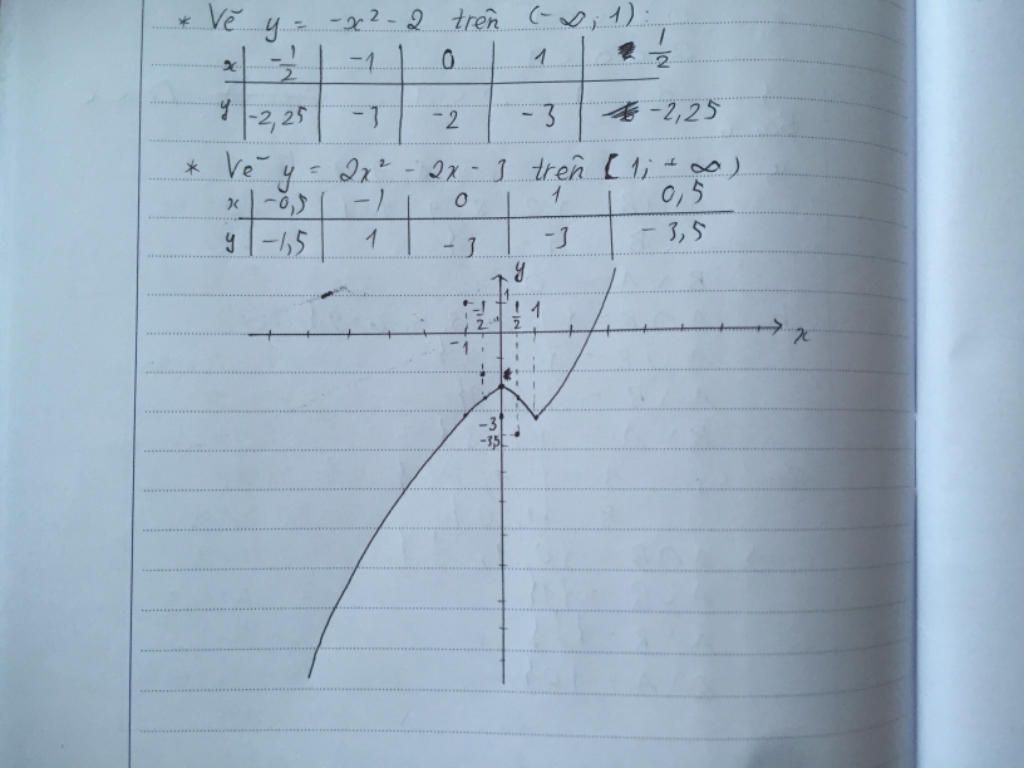 * Vẽ y = -x² - 2 trên (-∞; 1):
x -1/2 -1 0 1 1/2
y -2,25 -3 -2 -3 -2,25
* Vẽ y = 2x² - 2x - 3 trên [1; +∞)
x -0,5 -1 0 1 0,5
y -1,5 1 -3 -3 -3,5
y
1
-1/2 1/2 1
-1
x
-3
-3,5